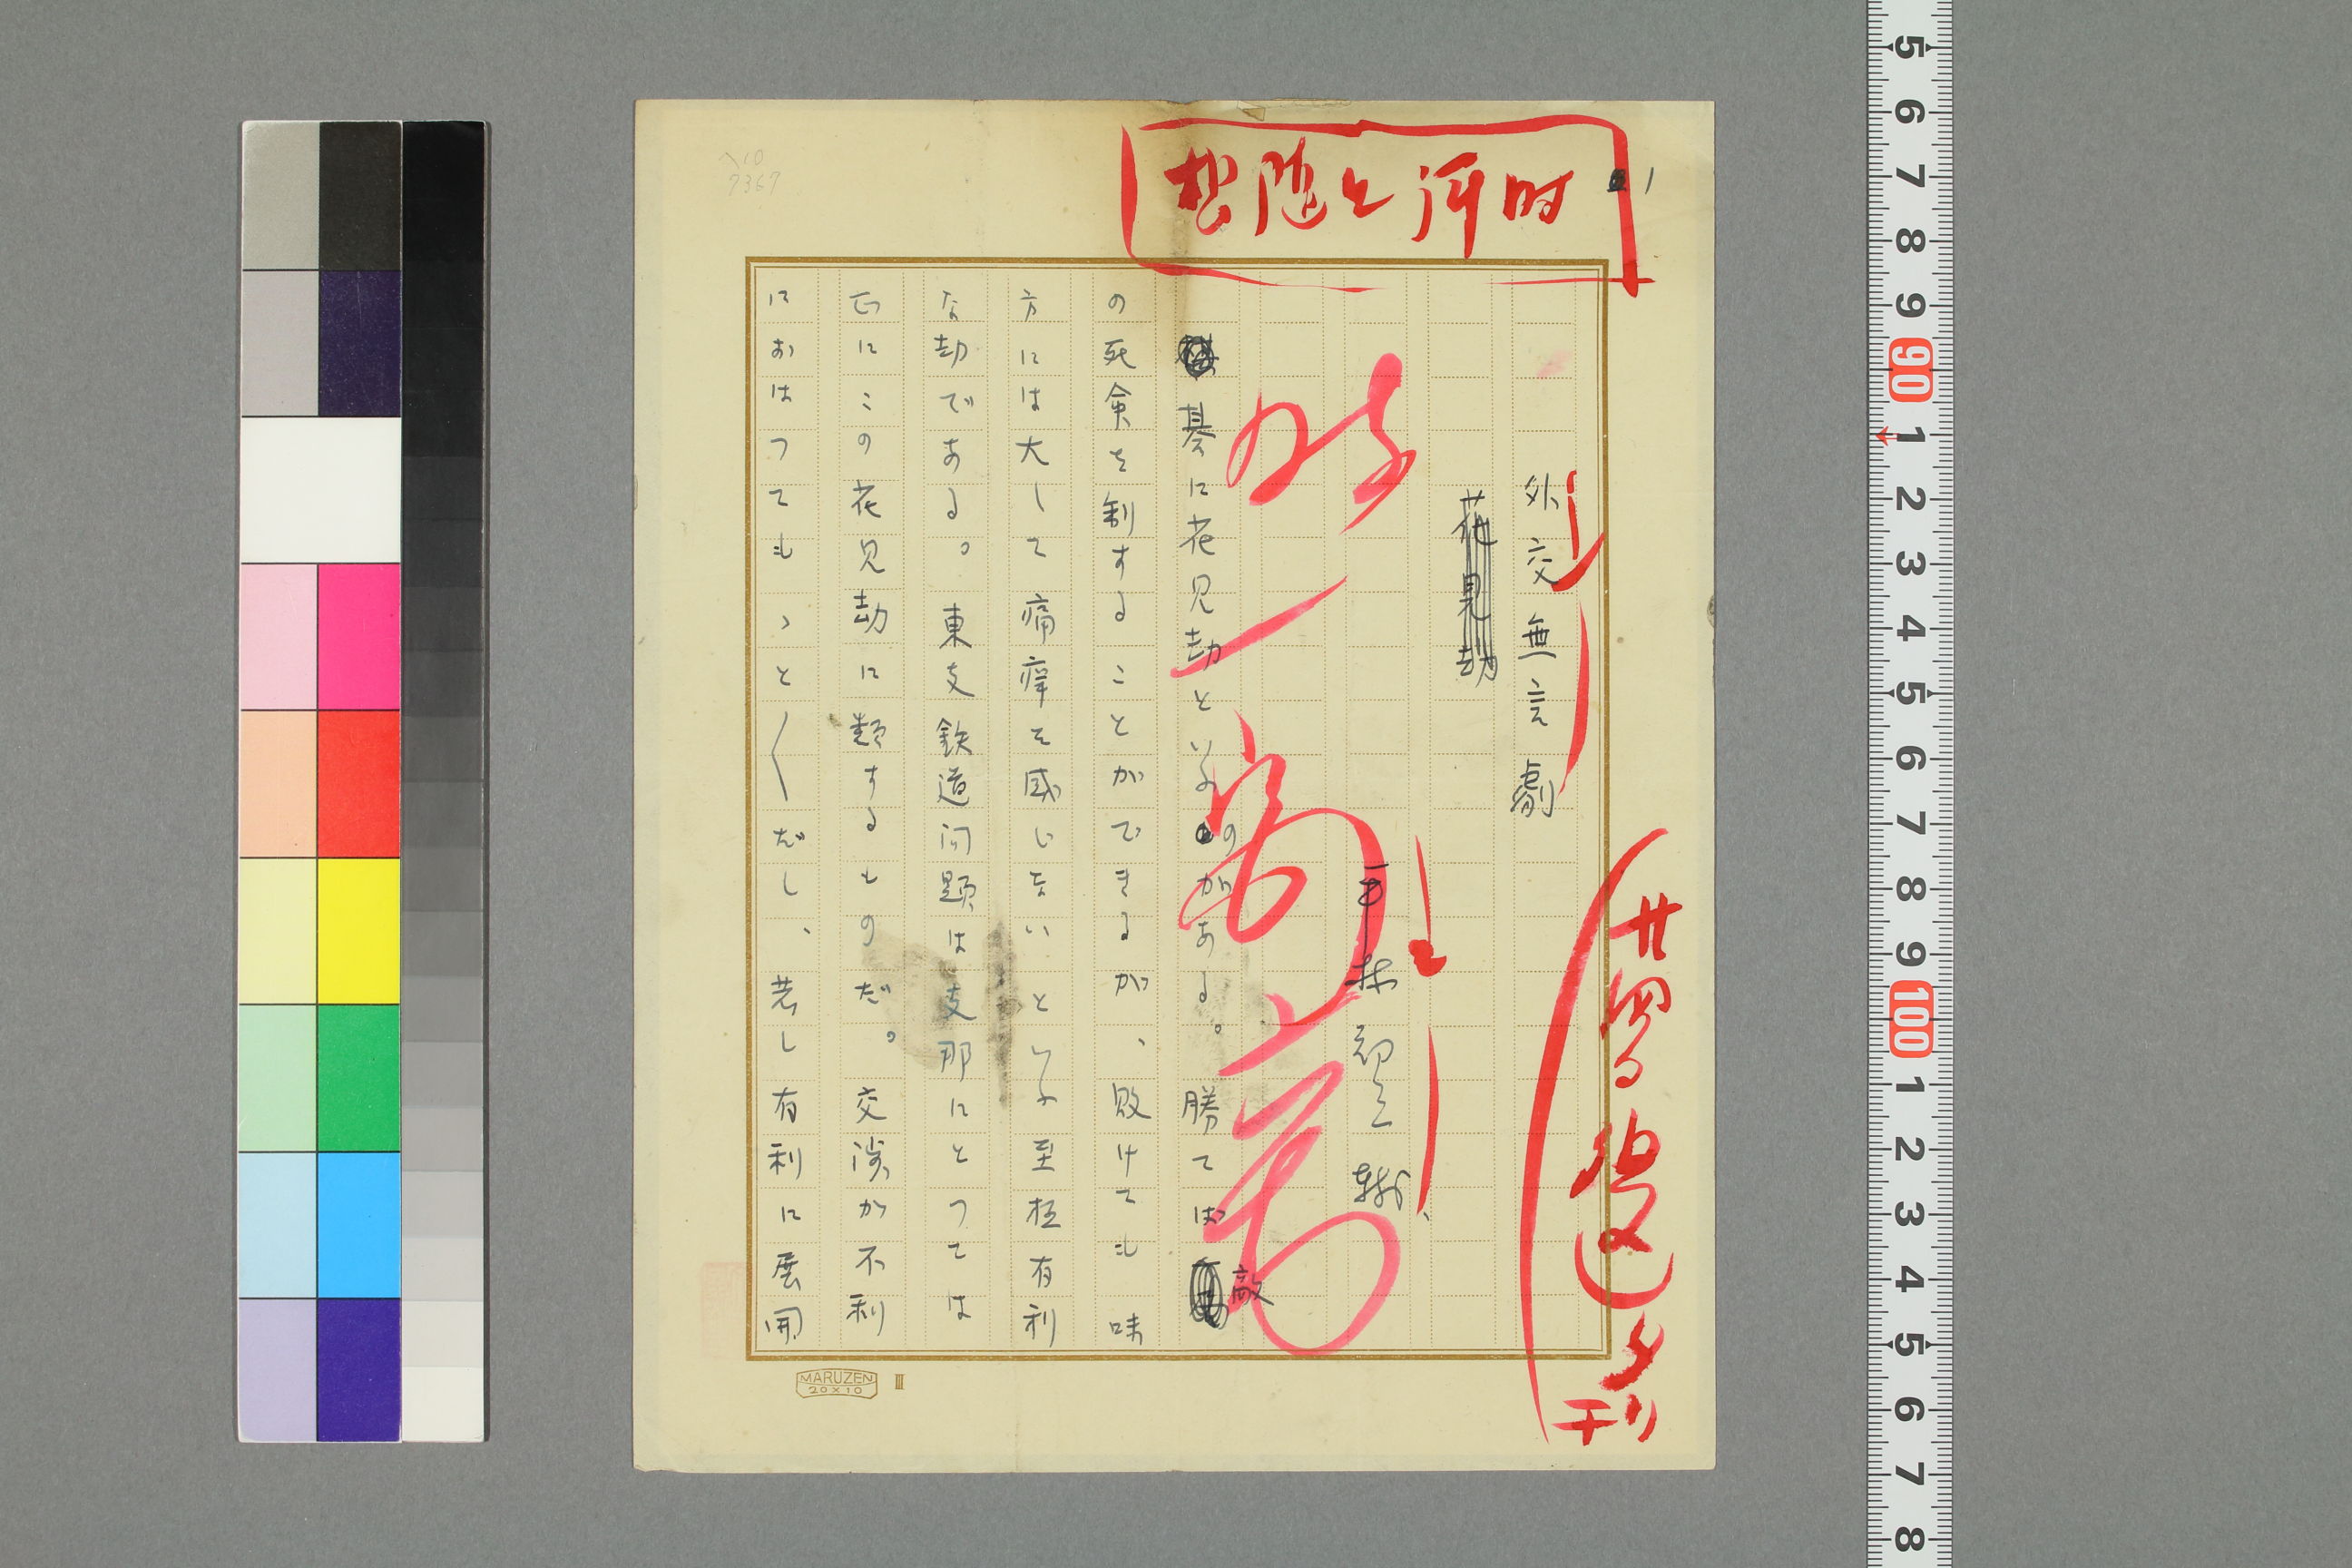 時評と随想
1
外交無言劇
花見劫
平林初之輔
碁に花見劫といふのがある。勝てば敵
の死命を制することができるが、敗けても味
方には大して痛痒を感じないといふ至極有利
な劫である。東支鉄道問題は支那にとつては
正にこの花見劫に類するものだ。交渉が不利
におはつてももともとだし、若し有利に展開
廿四日
夕刊
ヘ10
7367
MARUZEN
20×10
III
5 6 7 8 9 90 1 2 3 4 5 6 7 8 9 100 1 2 3 4 5 6 7 8